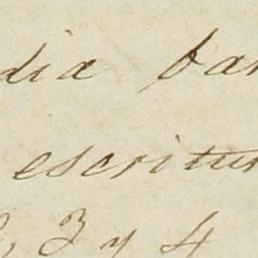 dia
escritur
3 y 4